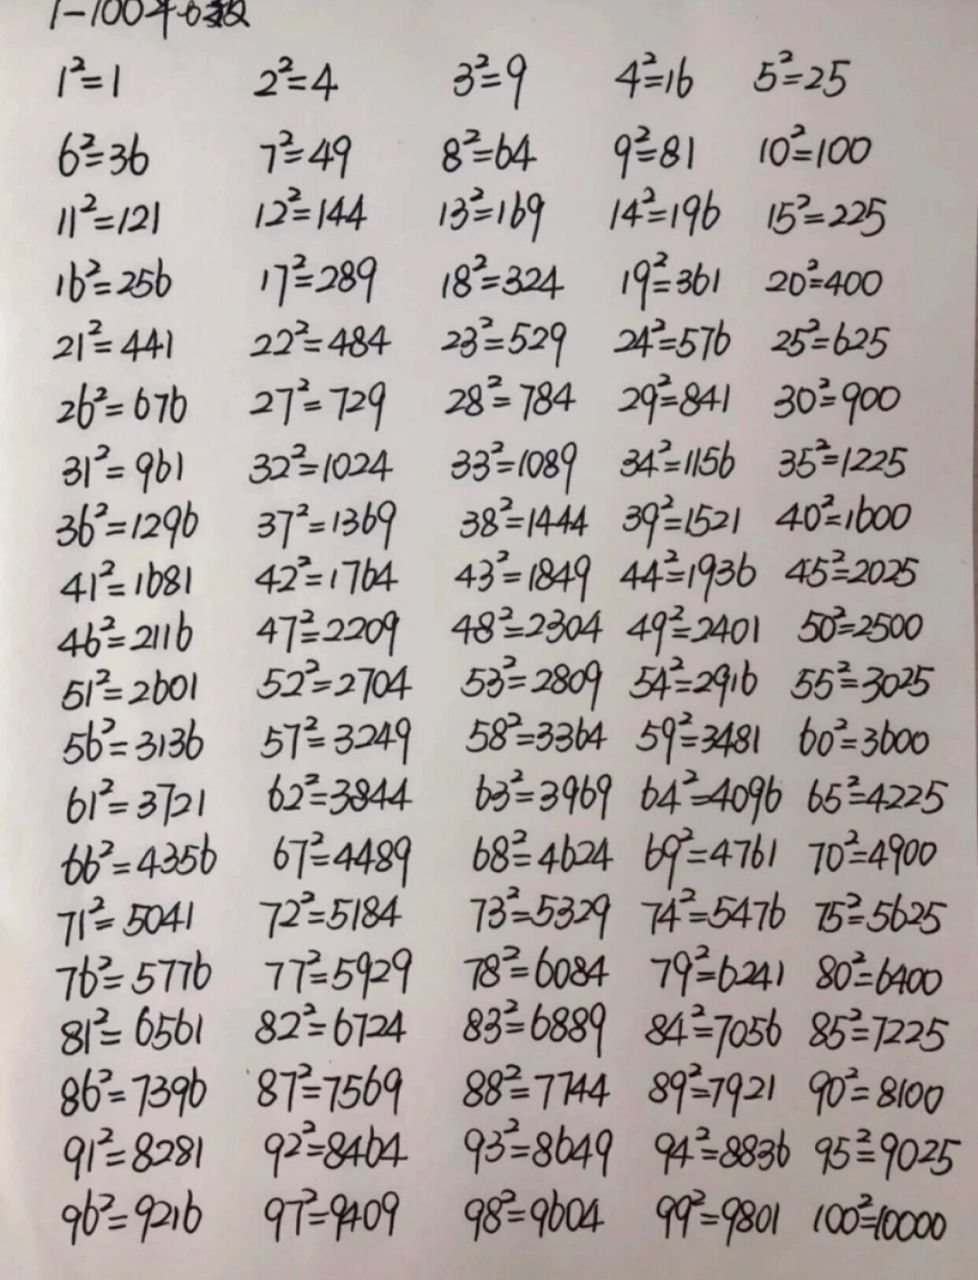 1-100平方数
1²=1 2²=4 3²=9 4²=16 5²=25
6²=36 7²=49 8²=64 9²=81 10²=100
11²=121 12²=144 13²=169 14²=196 15²=225
16²=256 17²=289 18²=324 19²=361 20²=400
21²=441 22²=484 23²=529 24²=576 25²=625
26²=676 27²=729 28²=784 29²=841 30²=900
31²=961 32²=1024 33²=1089 34²=1156 35²=1225
36²=1296 37²=1369 38²=1444 39²=1521 40²=1600
41²=1681 42²=1764 43²=1849 44²=1936 45²=2025
46²=2116 47²=2209 48²=2304 49²=2401 50²=2500
51²=2601 52²=2704 53²=2809 54²=2916 55²=3025
56²=3136 57²=3249 58²=3364 59²=3481 60²=3600
61²=3721 62²=3844 63²=3969 64²=4096 65²=4225
66²=4356 67²=4489 68²=4624 69²=4761 70²=4900
71²=5041 72²=5184 73²=5329 74²=5476 75²=5625
76²=5776 77²=5929 78²=6084 79²=6241 80²=6400
81²=6561 82²=6724 83²=6889 84²=7056 85²=7225
86²=7396 87²=7569 88²=7744 89²=7921 90²=8100
91²=8281 92²=8464 93²=8649 94²=8836 95²=9025
96²=9216 97²=9409 98²=9604 99²=9801 100²=10000